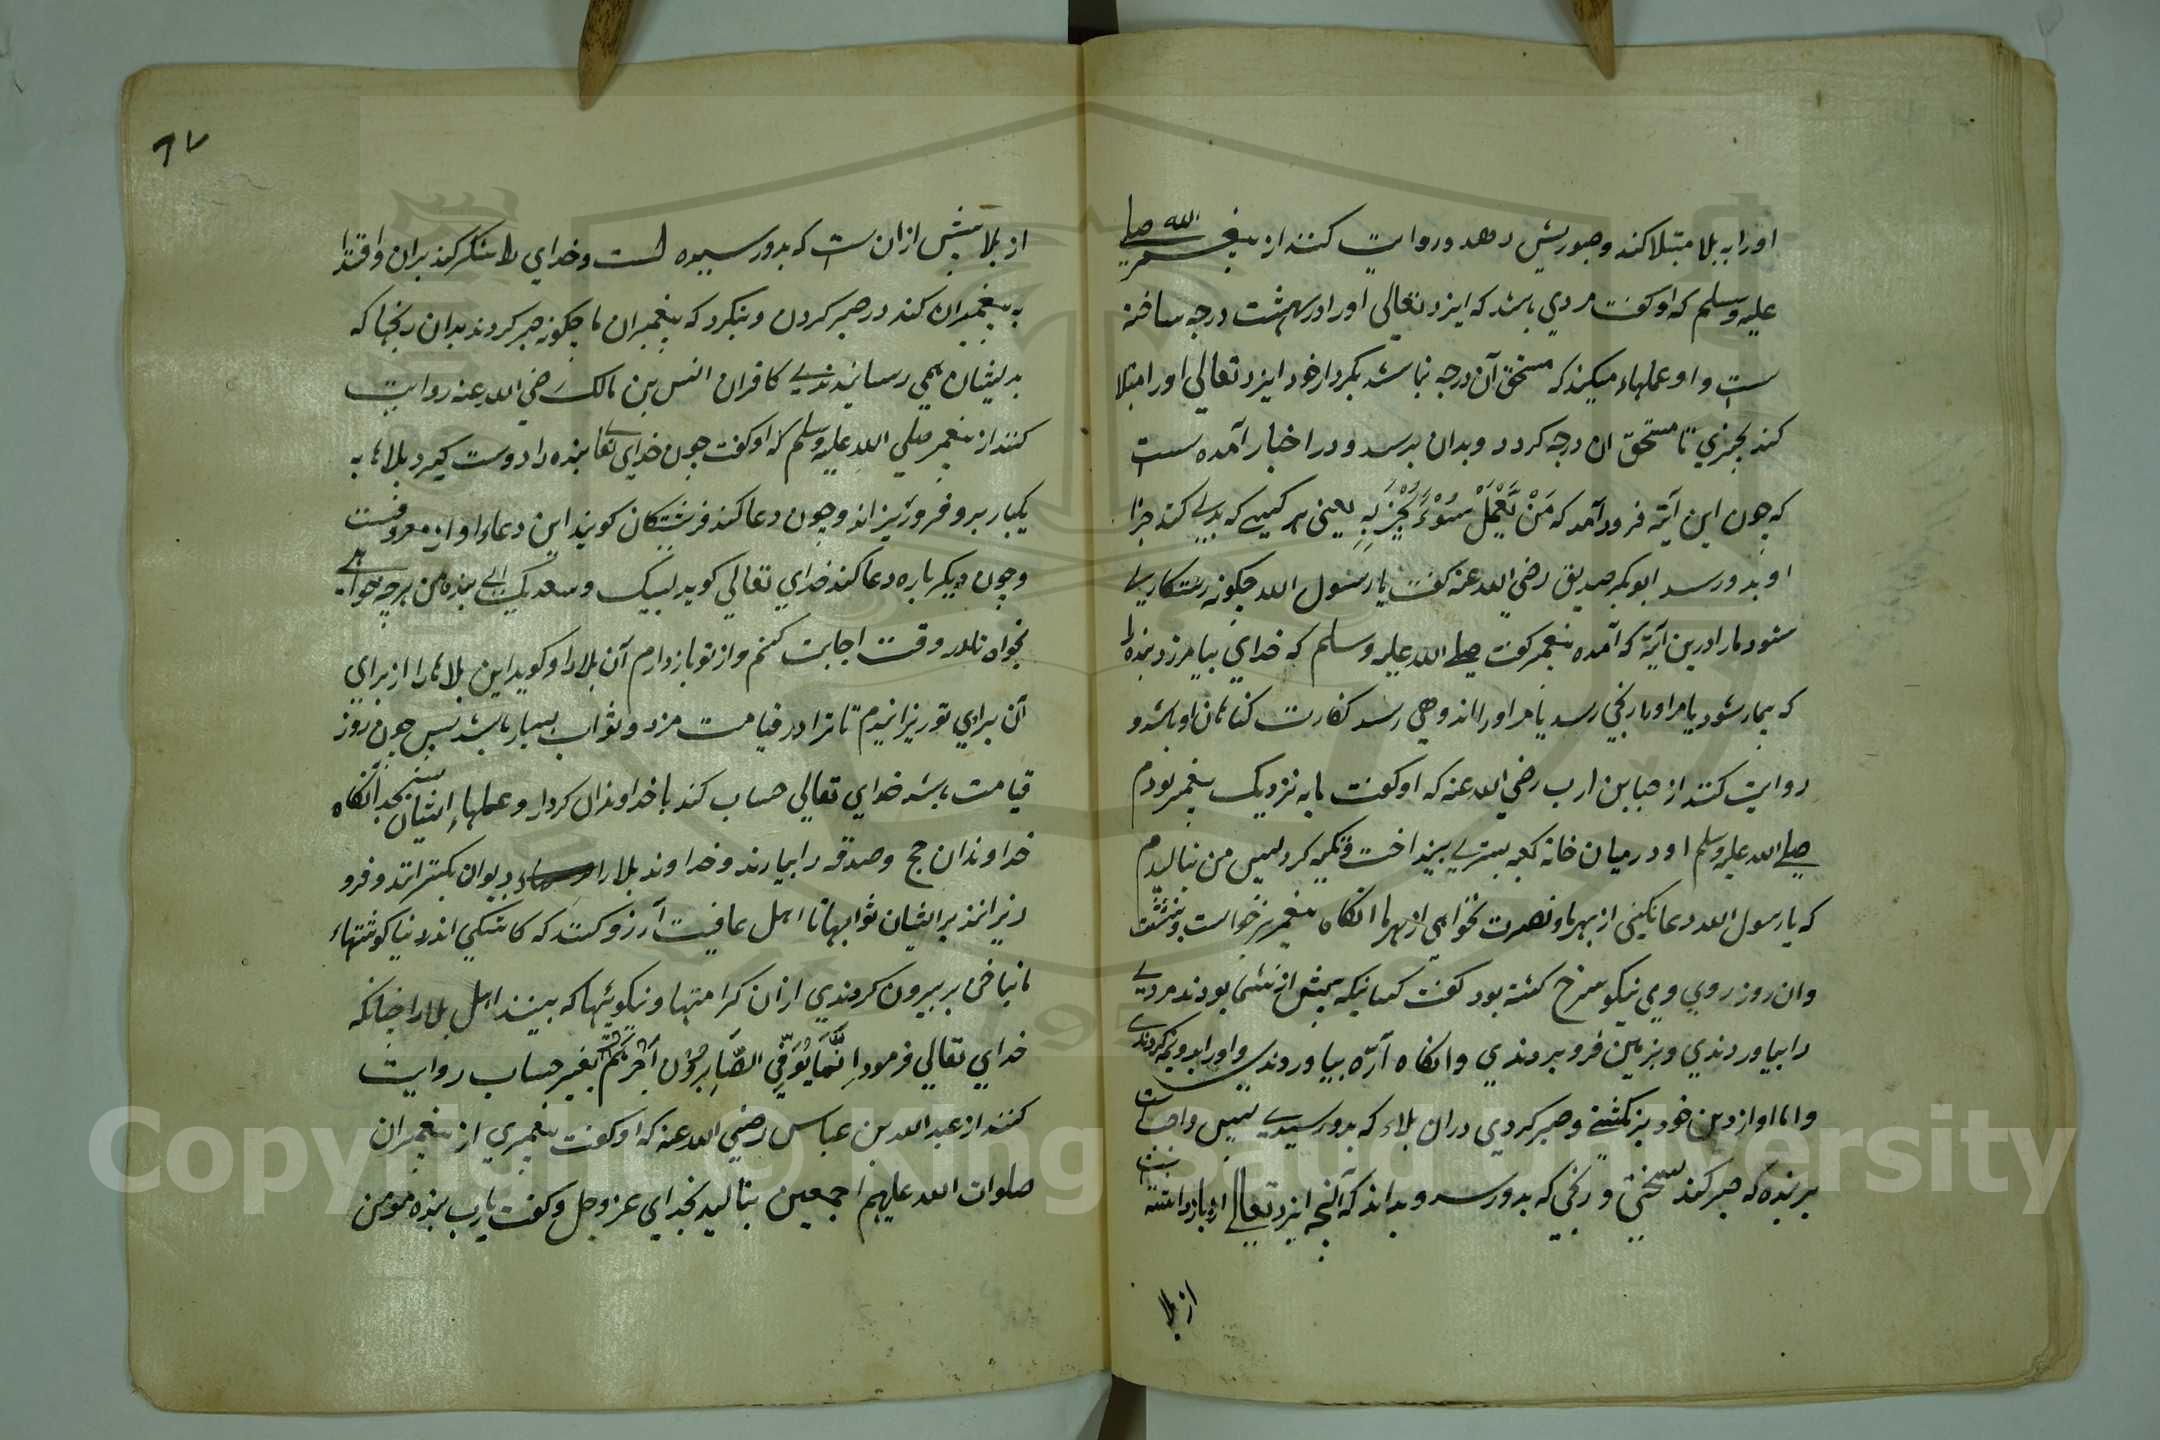 اورا به بلا مبتلا کند و صبوریش دهد و روایت کنند از پیغمبر صلی الله
علیه وسلم که او کفت مردی باشد که ایزد تعالی اورا در بهشت درجه ساخته
ست و او عملهاء میکند که مستحق آن درجه نباشد بکردار خود ایزد تعالی اورا مبتلا
کند بچیزی تا مستحق ان درجه کردد و بدان برسد و در اخبار آمده ست
که چون این آیته فرود آمد که مَنْ یَّعْمَلْ سُوْءً یُّجْزَ بِهِ یعنی هر کسی که بدی کند جزا
او بدو رسد ابوبکر صدیق رضی الله عنه کفت یا رسول الله چکونه رستکاری
شود مارا درین آیة که آمده پیغمبر کفت صلی الله علیه وسلم که خدای بیامرزد بنده را
که بیمار شود یا مر اورا رنجی رسد یا مر اورا اندوهی رسد کفارت کناهان او باشد و
روایت کنند از خباب بن ارت رضی الله عنه که او کفت ما به نزدیک پیغمبر بودم
صلی الله علیه وسلم او در میان خانه کعبه بستری بینداخت و تکیه کرد پس من بنالیدم
که یا رسول الله دعا نکینی از بهر ما و نصرت نخواهی از بهر ما انکاه پیغمبر برخواست و بنشست
وان روز روی وی نیکو سرخ کشته بود کفت کسانیکه پیش از شما بودند مردی
را بیاوردندی و بزمین فرو بردندی و انکاه آرّه بیاوردندی و اورا بدو نیم کردندی
و اما او از دین خود بر نکشتی و صبر کردی دران بلاء که بدو رسیدی پس واجبست
بر بنده که صبر کند بسختی و رنجی که بدو رسد و بداند که آنچه ایزد تعالی ازو باز داشته است
از بلا
٦٧
از بلا بیش از ان ست که بدو رسیده است و خدای را شکر کند بران و اقتدا
به پیغمبران کند در صبر کردن و بنکرد که پیغمبران ما چکونه صبر کردند بدان رنجها که
بدیشان همی رسانیدندی کافران انس بن مالک رضی الله عنه روایت
کنند از پیغمبر صلی الله علیه وسلم که او کفت چون خدای تعا بنده را دوست کیرد بلاها به
یکبار برو فرو ریزاند و چون دعا کند فرشتکان کویند این دعاء اواز معروفست
و چون دیکر باره دعا کند خدای تعالی کوید لبیک و سعدیک ای بنده من هر چه خواهی
بخواه تا در وقت اجابت کنم و از تو باز دارم آن بلارا و کوید این بلاهارا از برای
آن برای تو ریزانیدم تا ترا در قیامت مزد و ثواب بسیار باشد پس چون روز
قیامت باشد خدای تعالی حساب کند با خداوندان کردار و عملهاء ایشان بسنجد آنکاه
خداوندان حج و صدقه را بیارند و خداوند بلارا دیوان نکسترانند و فرو
ریزانند بر ایشان ثوابها تا اهل عافیت آرزو کنند که کاشکی اندر دنیا کوشتهاء
ما بناخن پر بیرون کردندی از ان کرامتها و نیکوئیها که بینند اهل بلارا چنانکه
خدای تعالی فرمود اِنَّمَا یُوَفَّی الصَّابِرُوْنَ اَجْرَهُمْ بغیر حساب روایت
کنند از عبد الله بن عباس رضی الله عنه که او کفت پیغمبری از پیغمبران
صلوات الله علیهم اجمعین بنالید بخدای عز وجل و کفت یارب بنده مومن
Copyright © King Saud University
1957